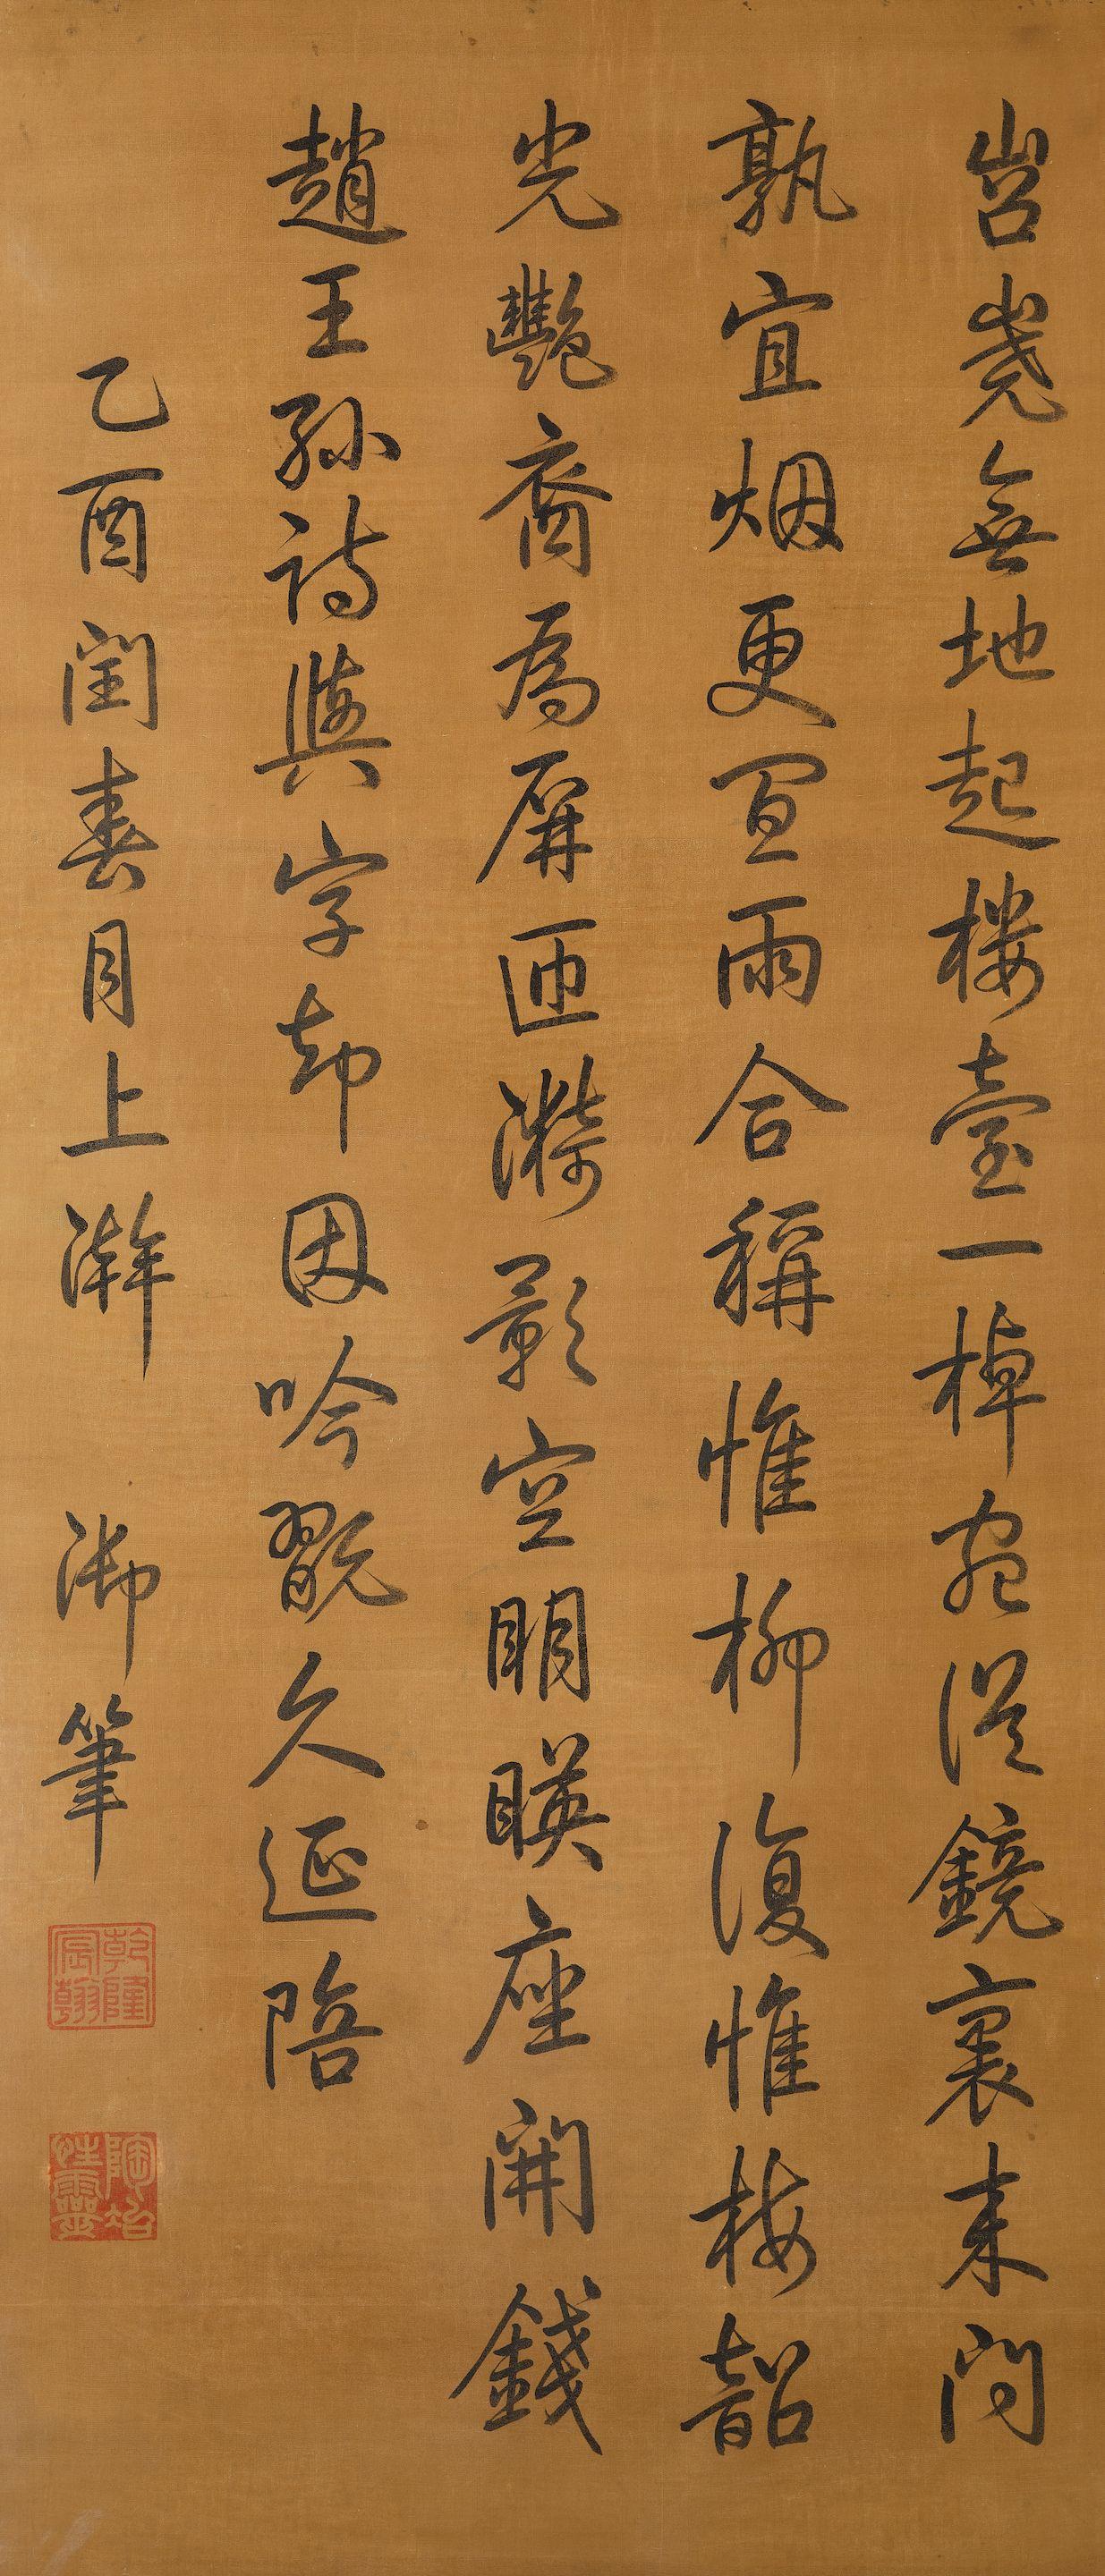 岧嶤無地起樓臺一棹宛從鏡裏来問
孰宜烟更宜雨合稱惟柳復惟梅韶
光艷裔為屏匝漪影空明暎座開錢
趙王孫詩與字却因吟翫久延陪
乙酉閏春月上澣 御筆
乾隆宸翰
陶冶性靈